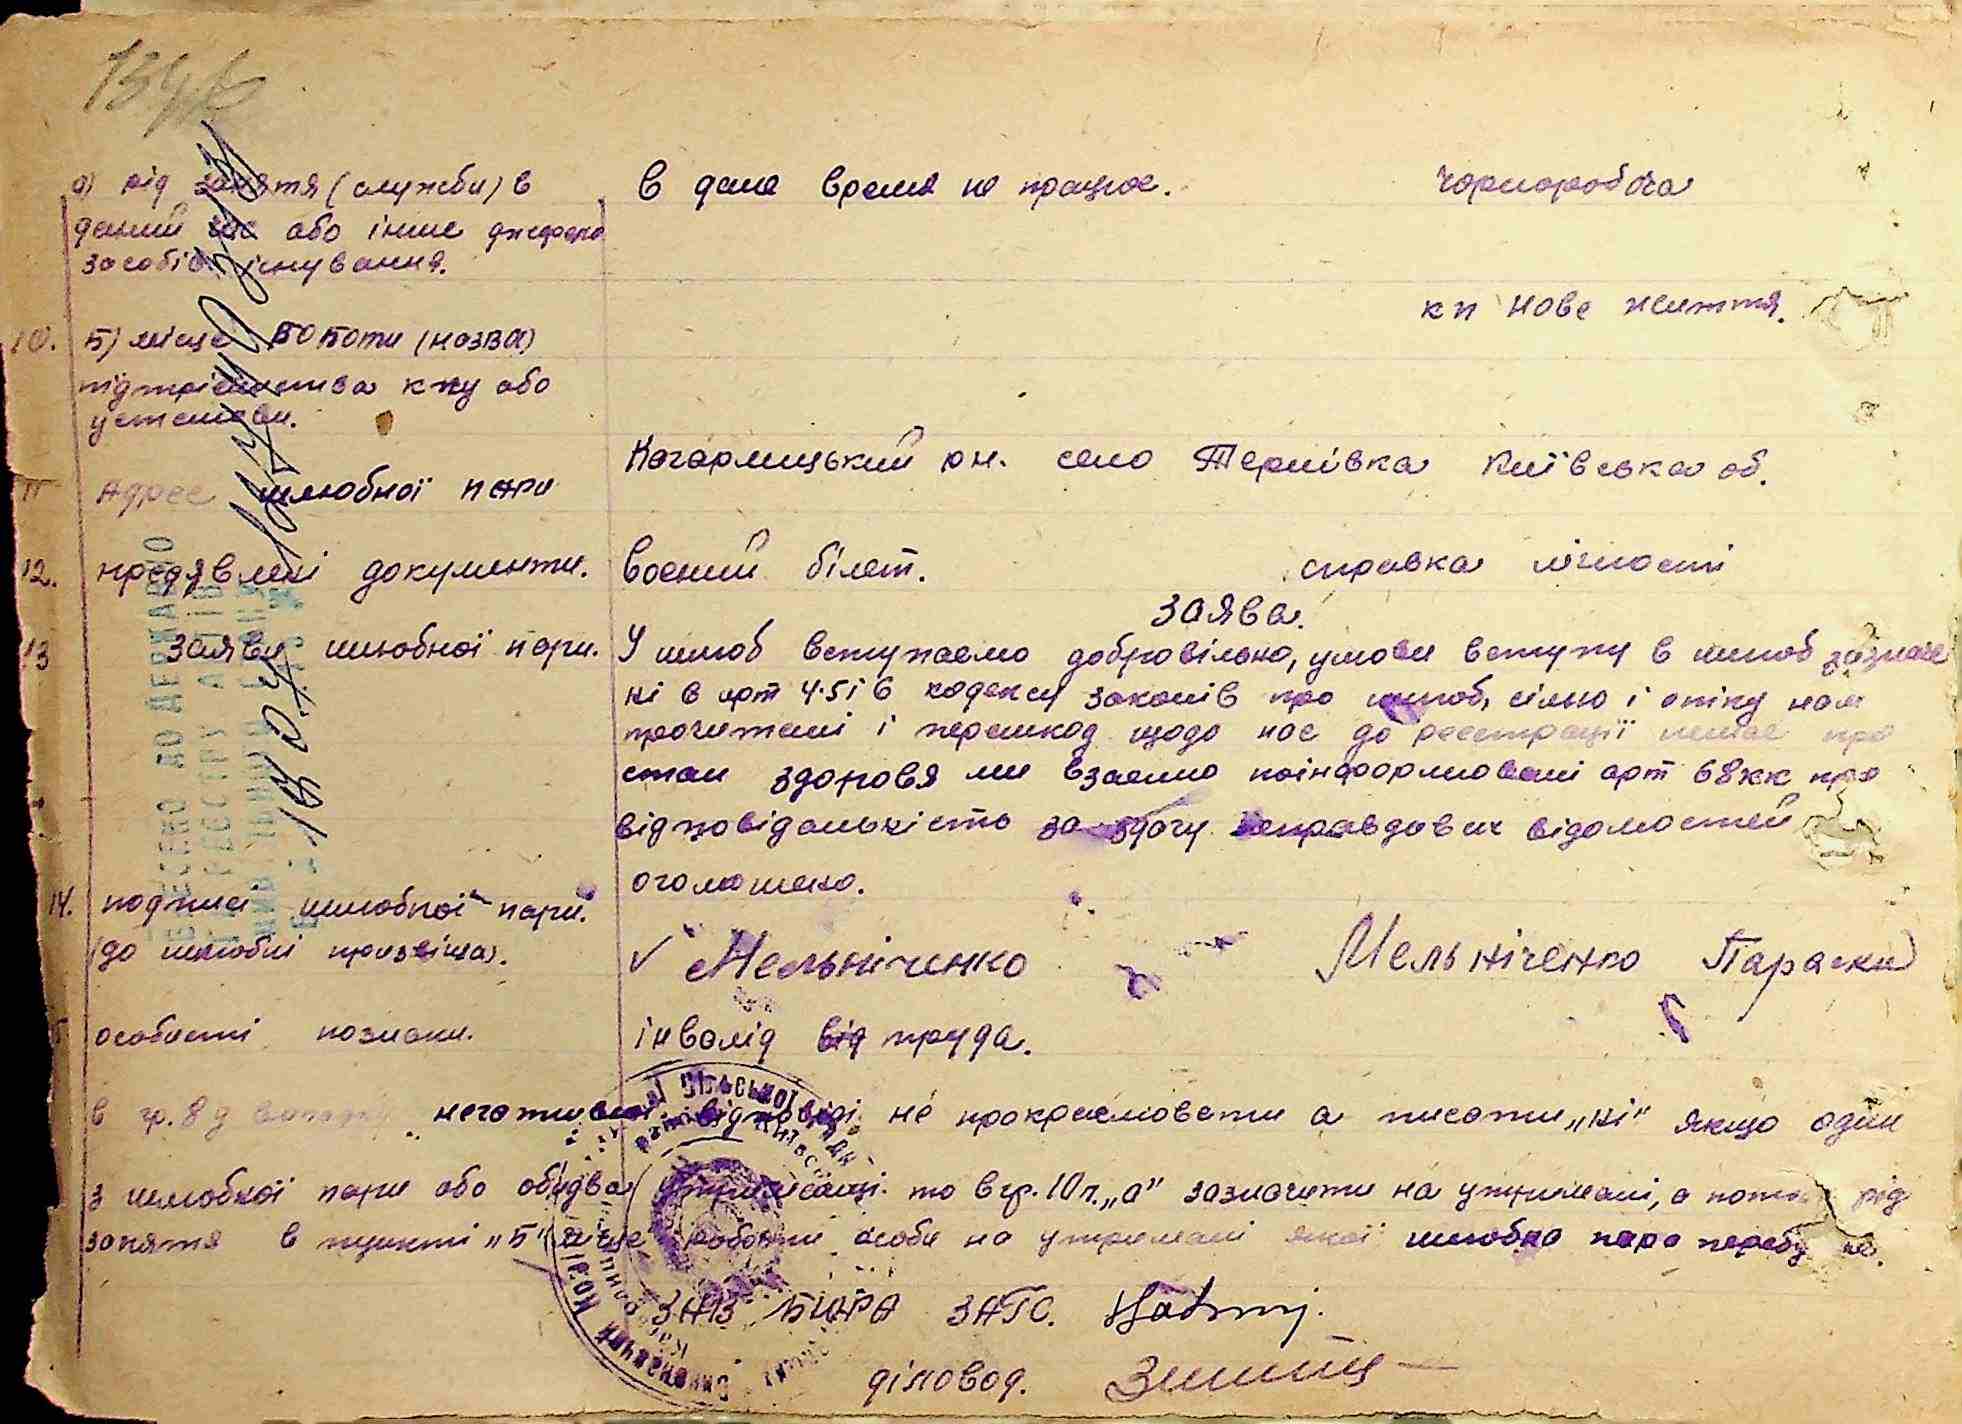 а) рід заняття (служби) в
даний час або інше джерело
засобів існування.
в дане время не працює.
чорноробоча
10. Б) місце роботи (назва)
підприємства к-пу або
установи.
кп нове життя.
11 Адрес шлюбної пари
Кагарлицький рн. село Тернівка Київська об.
12. предявлені документи.
воений білет.
справка лічності
заява.
13 заява шлюбної пари.
У шлюб вступаємо добровільно, умови вступу в шлюб зазначе
ні в арт 4.5 і 6 кодексу законів про шлюб, сімю і опіку нам
прочитані і перешкод щодо нас до реєстрації немає про
стан здоровя ми взаємно поінформовані арт 68 кк про
відповідальність за здачу неправдових відомостей
оголошено.
14. подписи шлюбної пари.
(до шлюбні призвіща).
✓ Мельніченко
Мельніченко Параски
особисті познаки.
інвалід від труда.
в гр. 8 у негативної відповіді не прокреслювати а писати „ні" якщо один
з шлюбної пари або обидва утриманці то в гр. 10 п. „а" зазначити на утримані, а потім рід
заняття в пункті „Б" місце роботи особи на утримані якої шлюбна пара перебуває.
ЗАВ БЮРА ЗАГС.
діловод.